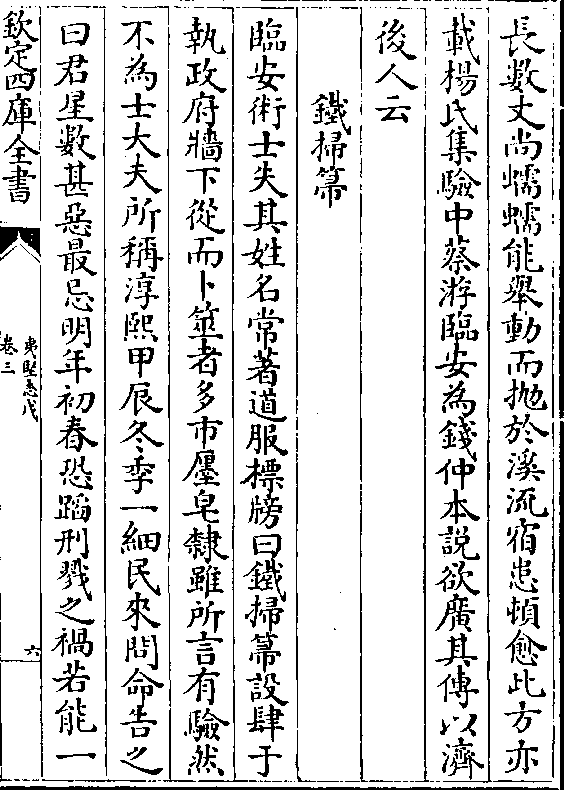 長數丈尚蠕蠕能舉動而抛於溪流宿患頓愈此方亦
載楊氏集驗中蔡游臨安為錢仲本說欲廣其傳以濟
後人云
鐵掃箒
臨安術士失其姓名常著道服標牓曰鐵掃箒設肆于
執政府牆下從而卜筮者多市廛皂隸雖所言有驗然
不為士大夫所稱淳熙甲辰冬季一細民來問命告之
曰君星數甚惡最忌明年初春恐蹈刑戮之禍若能一
欽定四庫全書
夷堅志戊
卷三
六